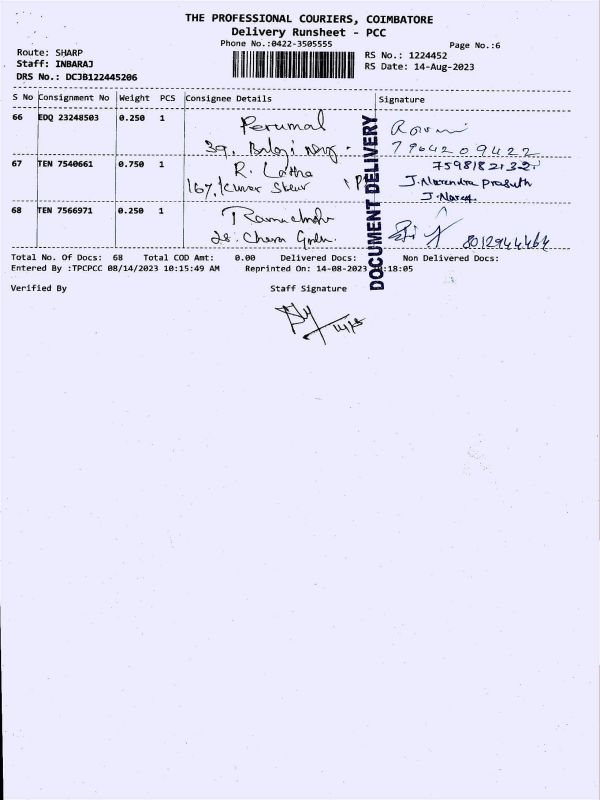 THE PROFESSIONAL COURIERS, COIMBATORE
Delivery Runsheet - PCC
Phone No.:0422-3505555
Page No.:6
Route: SHARP
Staff: INBARAJ
DRS No.: DCJB122445206
RS No.: 1224452
RS Date: 14-Aug-2023
S No Consignment No Weight PCS Consignee Details Signature
66 EDQ 23248503 0.250 1 Perumal
39, Balaji
7904209422
67 TEN 7540661 0.750 1 R. Latha
167, Kumar
7598182132
J. Narendra Prasath
68 TEN 7566971 0.250 1
28, Cheran
8012944464
DOCUMENT DELIVERY
Total No. Of Docs: 68 Total COD Amt: 0.00 Delivered Docs: Non Delivered Docs:
Entered By :TPCPCC 08/14/2023 10:15:49 AM Reprinted On: 14-08-2023 :18:05
Verified By Staff Signature